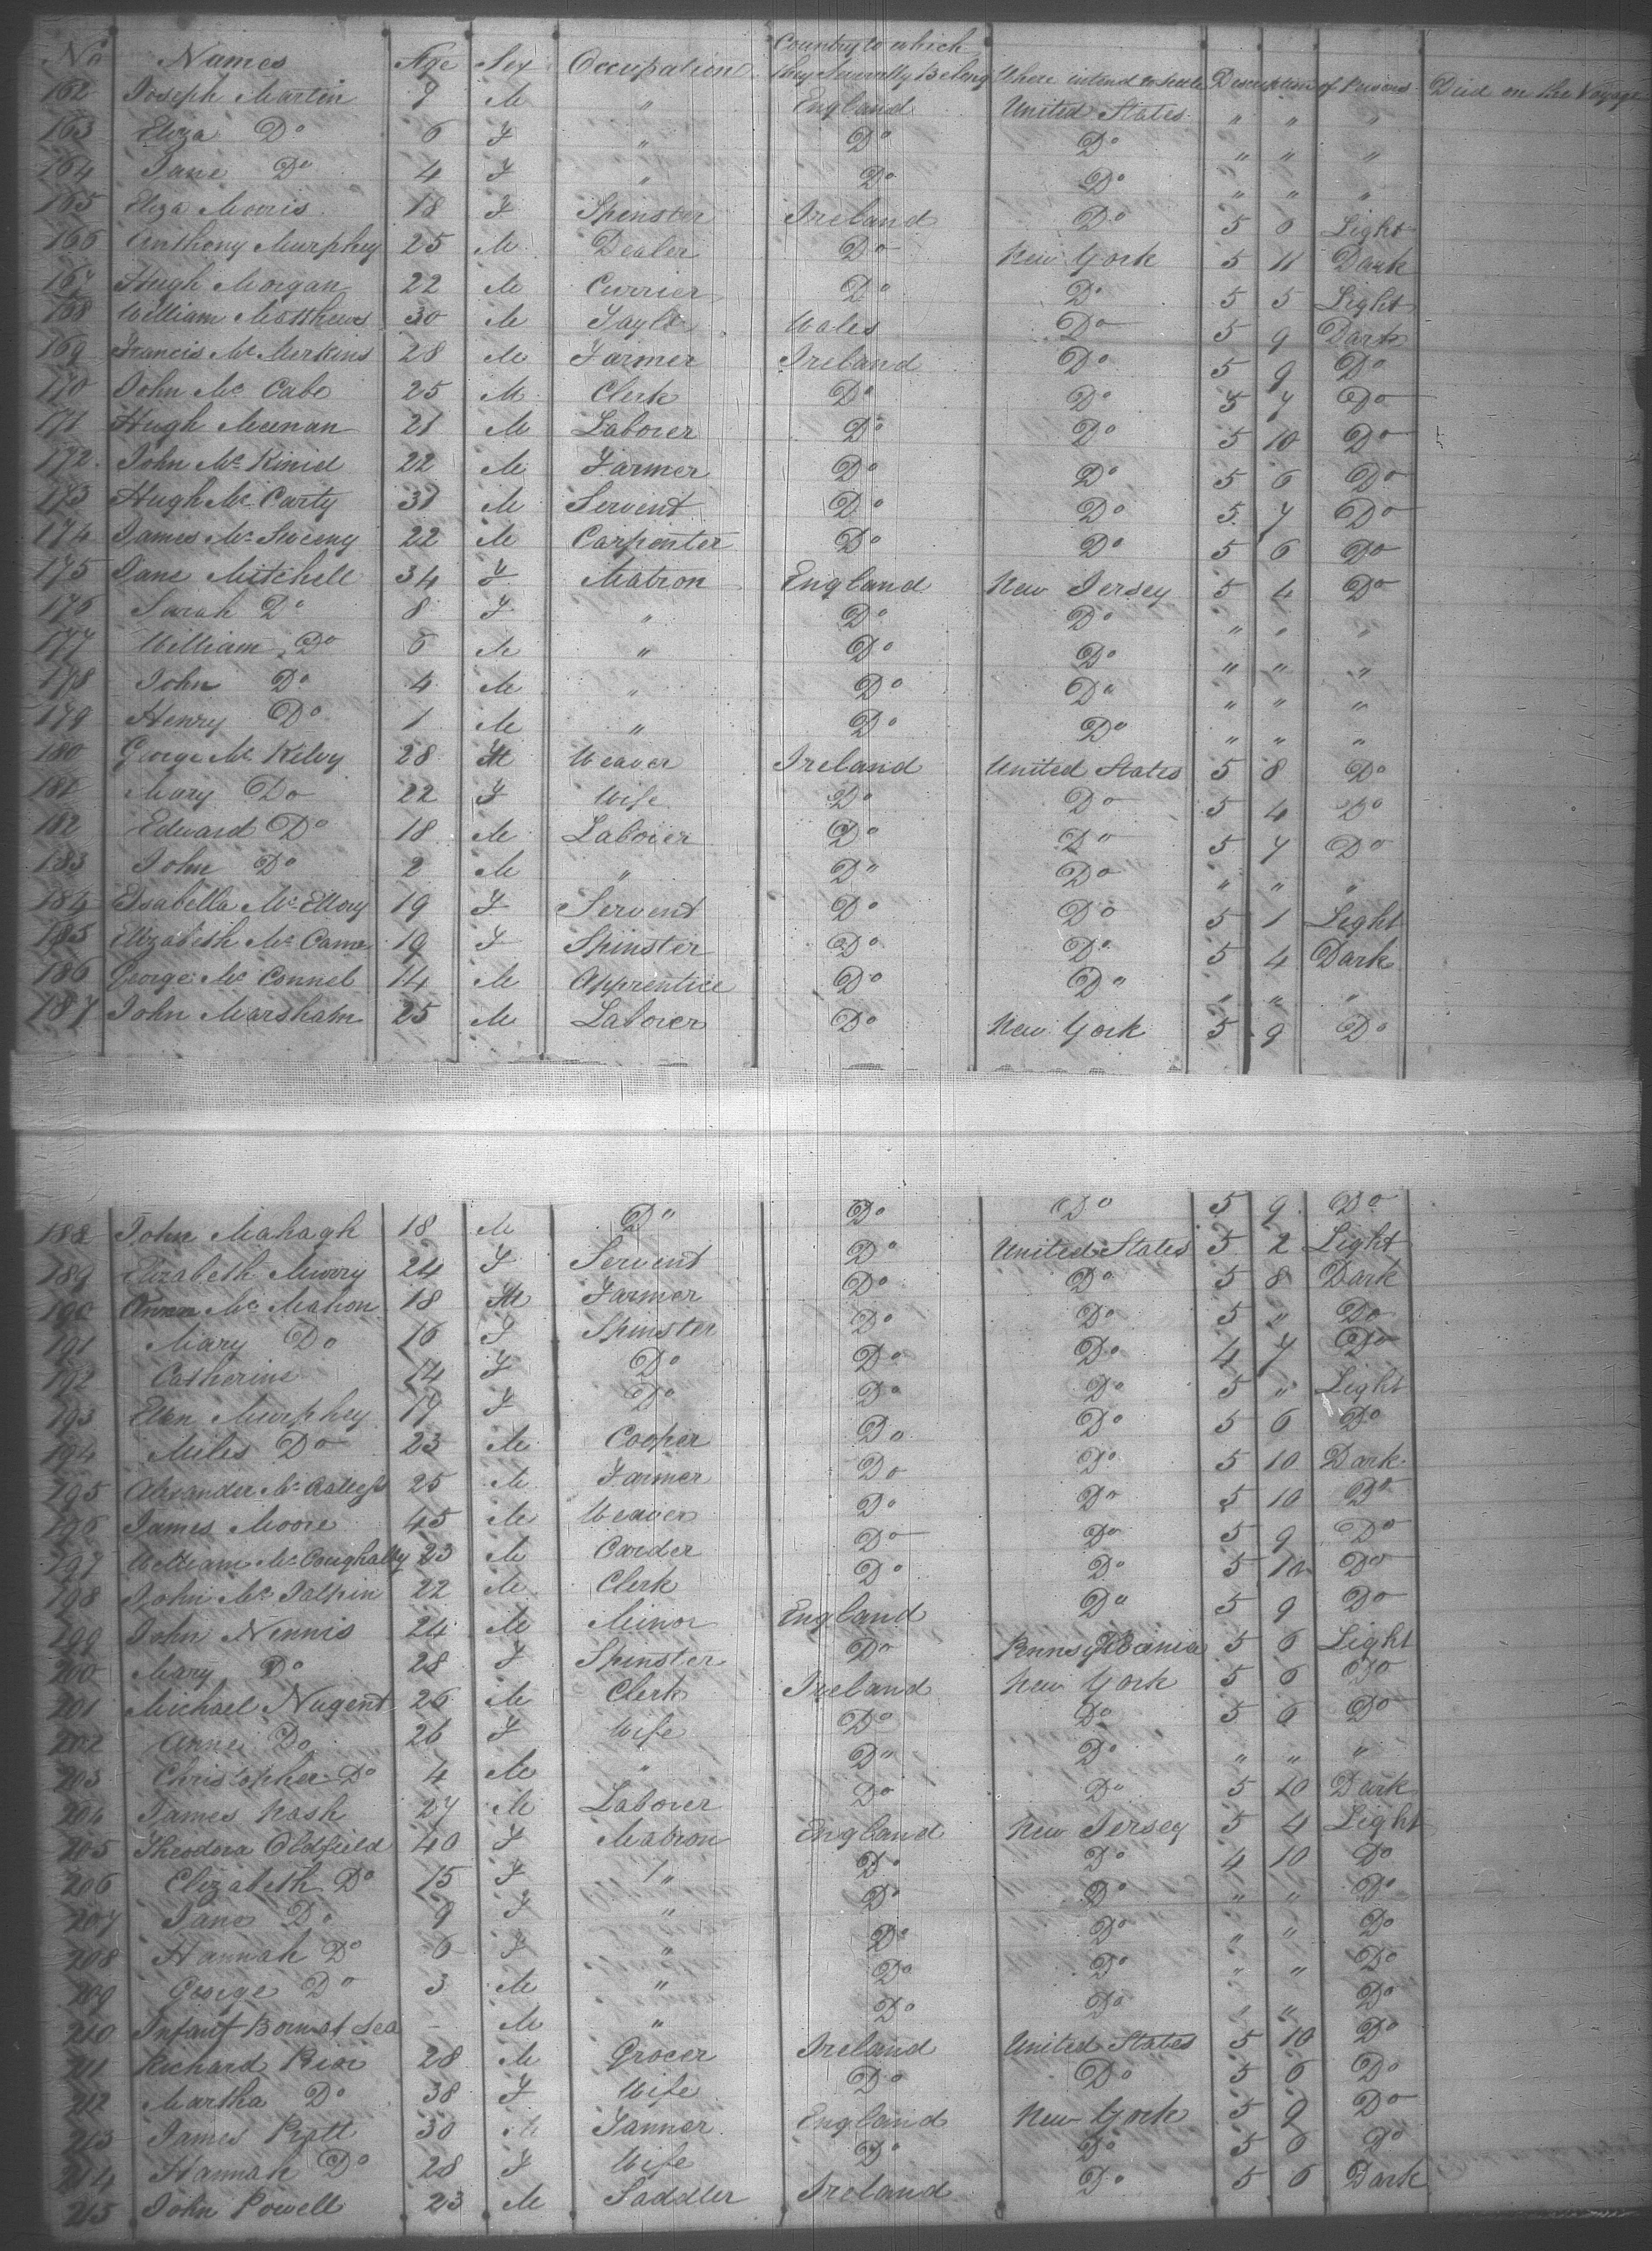 No Names Age Sex Occupation Country to which they Severally Belong Where intend to settle Description of Persons Died on the Voyage
162 Joseph Martin 9 M " England United States " " "
163 Eliza Do 6 F " Do Do " " "
164 Jane Do 4 F " Do Do " " "
165 Eliza Morris 18 F Spinster Ireland Do 5 0 Light
166 Anthony Murphey 25 M Dealer Do New York 5 11 Dark
167 Hugh Morgan 22 M Currier Do Do 5 5 Light
168 William Matthews 30 M Wales Do 5 9 Dark
169 Francis Mc Merkins 28 M Farmer Ireland Do 5 9 Do
170 John Mc Cabe 25 M Clerk Do Do 5 7 Do
171 Hugh Meenan 21 M Laborer Do Do 5 10 Do
172 John Mc Kinid 22 M Farmer Do Do 5 6 Do
173 Hugh Mc Carty 31 M Servent Do Do 5 7 Do
174 James Mc Sweeny 22 M Carpenter Do Do 5 6 Do
175 Jane Mitchell 34 F Matron England New Jersey 5 4 Do
176 Sarah Do 8 F " Do Do " " "
177 William Do 6 M " Do Do " " "
178 John Do 4 M " Do Do " " "
179 Henry Do 1 M " Do Do " " "
180 George Mc Kelvy 28 M Weaver Ireland United States 5 8 Do
181 Mary Do 22 F Wife Do Do 5 4 Do
182 Edward Do 18 M Laborer Do Do 5 7 Do
183 John Do 2 M " Do Do " " "
184 Esabella Mc Ellory 19 F Servent Do Do 5 1 Light
185 Elizabeth Mc Came 19 F Spinster Do Do 5 4 Dark
186 George Mc Connel 14 M Apprentice Do Do " " "
187 John Marsham 25 M Laborer Do New York 5 9 Do
188 John Mahagh 18 M Do Do Do 5 9 Do
189 Elizabeth Murry 24 F Servent Do United States 5 2 Light
190 Mc Mahon 18 M Farmer Do Do 5 8 Dark
191 Mary Do 16 F Spinster Do Do 5 " Do
192 Catherine 14 F Do Do Do 4 7 Do
193 Ellen Murphey 19 F Do Do Do 5 " Light
194 Miles Do 23 M Cooper Do Do 5 6 Do
195 Alexander Mc 25 M Farmer Do Do 5 10 Dark
196 James Moore 45 M Weaver Do Do 5 10 Do
197 William Mc Coughally 23 M Carder Do Do 5 9 Do
198 John Mc Jalpin 22 M Clerk Do Do 5 10 Do
199 John Nennis 24 M Minor England Do 5 9 Do
200 Mary Do 28 F Spinster Do Pennsylvania 5 6 Light
201 Michael Nugent 26 M Clerk Ireland New York 5 6 Do
202 Anne Do 26 F Wife Do Do 5 6 Do
203 Christopher Do 4 M " Do Do " " "
204 James Nash 27 M Laborer Do Do 5 10 Dark
205 Theodora Oldfield 40 F Matron England New Jersey 5 4 Light
206 Elizabeth Do 15 F " Do Do 4 10 Do
207 Jane Do 9 F " Do Do " " Do
208 Hannah Do 6 F " Do Do " " Do
209 George Do 3 M " Do Do " " Do
210 Infant Born at Sea - M " Do Do " " Do
211 Richard 28 M Grocer Ireland United States 5 10 Do
212 Martha Do 38 F Wife Do Do 5 6 Do
213 James Pratt 30 M Tanner England New York 5 9 Do
214 Hannah Do 28 F Wife Do Do 5 6 Do
215 John Powell 23 M Saddler Ireland Do 5 6 Dark